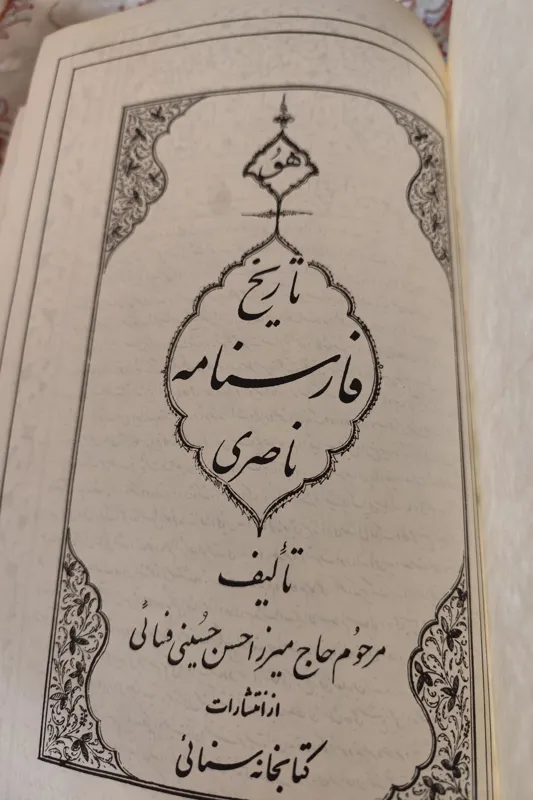 هو
تاریخ
فارسنامه
ناصری
تألیف
مرحوم حاج میرزا حسن حسینی فسائی
از انتشارات
کتابخانه سنائی